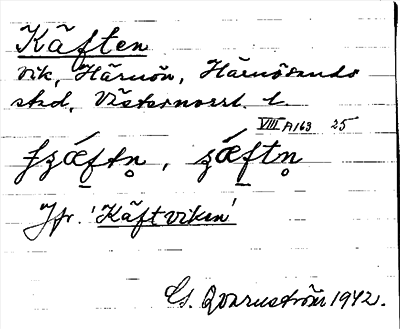 Käften
vik, Härnön, Härnösands
stad, Västernorrl. l.
VIII A163 25
Jfr. 'Käftviken'
Cs. Qvarnström 1942.